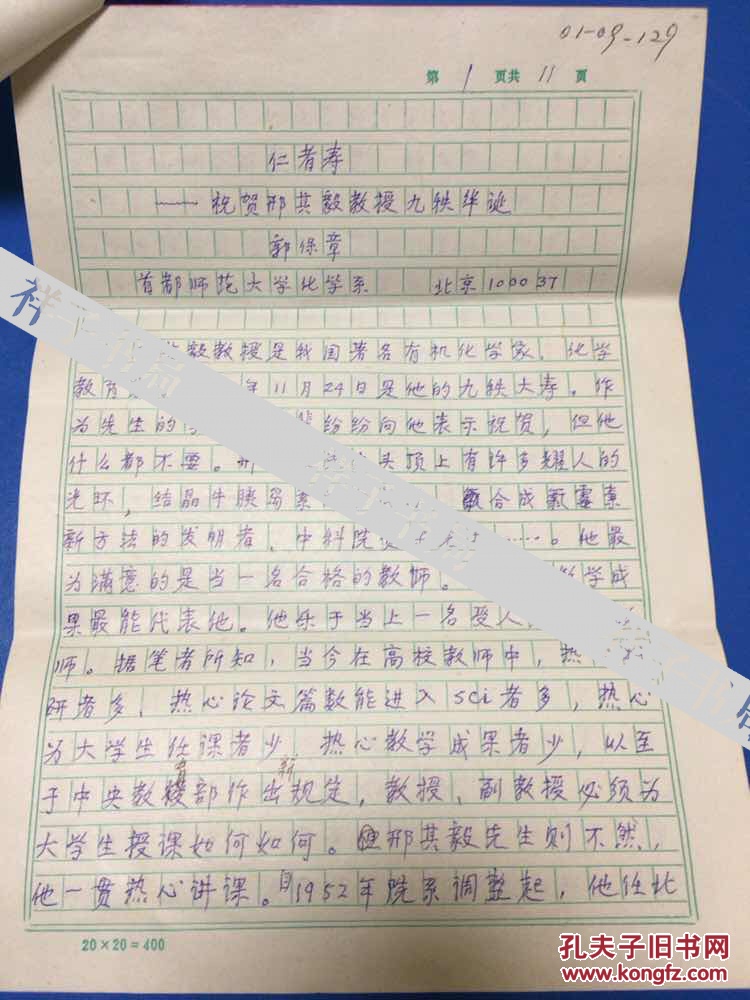 01-09-129
第 1 页共 11 页
仁者寿
——祝贺邢其毅教授九轶华诞
郭保章
首都师范大学化学系 北京100037
毅教授是我国著名有机化学家、化学
教育 年11月24日是他的九轶大寿。作
为先生的 纷纷向他表示祝贺，但他
什么都不要。 头顶上有许多耀人的
光环，结晶牛胰岛素 合成氯霉素
新方法的发明者、中科院 ……。他最
为满意的是当一名合格的教师。 教学成
果最能代表他。他乐于当上一名受人
师。据笔者所知，当今在高校教师中，热
研者多、热心论文篇数能进入sci者多，热心
为大学生任课者少 热心教学成果者少，以至
于中央教育部作出新规定，教授、副教授必须为
大学生授课如何如何。邢其毅先生则不然，
他一贯热心讲课。自1952年院系调整起，他任北
20×20=400
孔夫子旧书网
www.kongfz.com